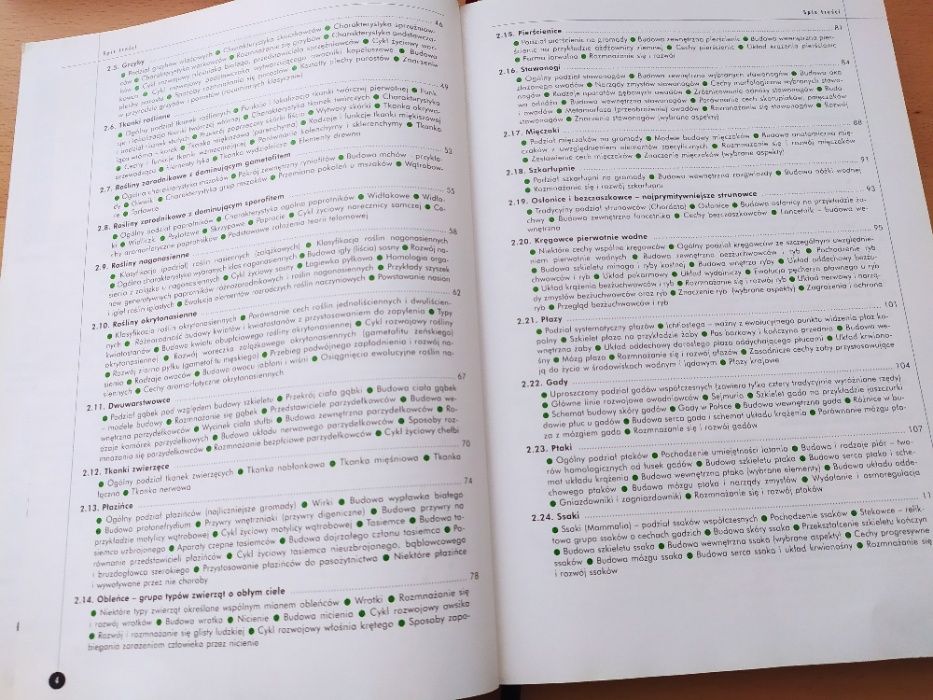 Spis treści
2.5. Grzyby 46
● Podział grzybów właściwych ● Charakterystyka skoczkowców ● Charakterystyka sprzężniow-
ców ● Charakterystyka workowców ● Rozmnażanie się grzybów ● Charakterystyka podstawcza-
2.6. Tkanki roślinne 49
● Ogólny podział tkanek roślinnych ● Funkcje i lokalizacja tkanki twórczej pierwotnej ● Funk-
cje i lokalizacja tkanki twórczej wtórnej ● Charakterystyka tkanek twórczych ● Charakterystyka
2.7. Rośliny zarodnikowe z dominującym gametofitem 53
● Ogólna charakterystyka mszaków ● Pokrój zewnętrzny ryniofitów ● Budowa mchów - przykła-
dy ● Glewik ● Charakterystyka grup mszaków ● Przemiana pokoleń u mszaków ● Wątrobow-
ce ● Torfowce
2.8. Rośliny zarodnikowe z dominującym sporofitem 55
● Ogólny podział paprotników ● Charakterystyka ogólna paprotników ● Widłakowe ● Widłak
● Widliczk ● Pylotowe ● Skrzypowe ● Paprocie ● Cykl życiowy narecznicy samczej ● Ce-
chy aromorfotyczne paprotników ● Podstawowe założenia teorii telomowej
2.9. Rośliny nagonasienne 58
● Klasyfikacja (podział) roślin nasiennych (zalążkowych) ● Klasyfikacja roślin nagonasiennych
● Ogólna charakterystyka wybranych klas nagonasiennych ● Budowa igły (liścia) sosny ● Rozwój na-
sienia z zalążka u nagonasiennych ● Cykl życiowy sosny ● Łagiewka pyłkowa ● Homologia orga-
nów generatywnych paprotników różnozarodnikowych i roślin nagonasiennych ● Przykłady szyszek
i igieł roślin iglastych ● Ewolucja elementów rozrodczych roślin naczyniowych ● Powstawanie nasion
2.10. Rośliny okrytonasienne 62
● Klasyfikacja roślin okrytonasiennych ● Porównanie cech roślin jednoliściennych i dwuliścien-
nych ● Różnorodność budowy kwiatów i kwiatostanów z przystosowaniem do zapylenia ● Typy
kwiatostanów ● Budowa kwiatu obupłciowego rośliny okrytonasiennej ● Cykl rozwojowy rośliny
okrytonasiennej ● Rozwój woreczka zalążkowego okrytonasiennej (gametofitu żeńskiego)
● Rozwój ziarna pyłku (gametofitu męskiego) ● Przebieg podwójnego zapłodnienia i rozwój na-
sienia ● Rodzaje owoców ● Budowa owocu jabłoni i wiśni ● Osiągnięcia ewolucyjne roślin na-
siennych ● Cechy aromorfotyczne okrytonasiennych
2.11. Dwuwarstwowce 67
● Podział gąbek pod względem budowy szkieletu ● Przekrój ciała gąbki ● Budowa ciała gąbek
– modele budowy ● Rozmnażanie się gąbek ● Przedstawiciele parzydełkowców ● Budowa we-
wnętrzna parzydełkowców ● Wycinek ciała stułbi ● Budowa zewnętrzna parzydełkowców ● Ro-
dzaje komórek parzydełkowych ● Budowa układu nerwowego parzydełkowców ● Sposoby roz-
mnażania się parzydełkowców ● Rozmnażanie bezpłciowe parzydełkowców ● Cykl życiowy chełbi
2.12. Tkanki zwierzęce 70
● Ogólny podział tkanek zwierzęcych ● Tkanka nabłonkowa ● Tkanka mięśniowa ● Tkanka
łączna ● Tkanka nerwowa
2.13. Płazińce 74
● Ogólny podział płazińców (najliczniejsze gromady) ● Wirki ● Budowa wypławka białego
● Budowa protonefrydium ● Przywry wnętrzniaki (przywry digeniczne) ● Budowa przywry na
przykładzie motylicy wątrobowej ● Cykl życiowy motylicy wątrobowej ● Tasiemce ● Budowa ta-
siemca uzbrojonego ● Aparaty czepne tasiemców ● Budowa dojrzałego członu tasiemca ● Po-
równanie przedstawicieli płazińców ● Cykl życiowy tasiemca nieuzbrojonego, bąblowcowego
i bruzdogłowca szerokiego ● Przystosowanie płazińców do pasożytnictwa ● Niektóre płazińce
i wywoływane przez nie choroby
2.14. Obleńce – grupa typów zwierząt o obłym ciele 78
● Niektóre typy zwierząt określane wspólnym mianem obleńców ● Wrotki ● Rozmnażanie się
i rozwój wrotków ● Budowa wrotka ● Nicienie ● Budowa nicienia ● Cykl rozwojowy owsika
● Rozwój i rozmnażanie się glisty ludzkiej ● Cykl rozwojowy włośnia krętego ● Sposoby zapo-
biegania zarażeniom człowieka przez nicienie
4
Spis treści
2.15. Pierścienice 81
● Podział pierścienic na gromady ● Budowa zewnętrzna pierścienic ● Budowa wewnętrzna pier-
ścienic na przykładzie dżdżownicy ziemnej ● Cechy pierścienic ● Układ krążenia pierścienic
● Forma larwalna ● Rozmnażanie się i rozwój
2.16. Stawonogi 84
● Ogólny podział stawonogów ● Budowa zewnętrzna wybranych stawonogów ● Budowa oka
złożonego owadów ● Narządy zmysłów owadów ● Cechy morfologiczne wybranych stawo-
nogów ● Rodzaje aparatów gębowych owadów ● Zróżnicowanie odnóży stawonogów ● Budo-
wa odnóża ● Budowa wewnętrzna stawonogów ● Porównanie cech skorupiaków, pajęczaków
i owadów ● Metamorfoza (przeobrażenie) owadów ● Rozmnażanie się stawonogów ● Rozwój
stawonogów ● Znaczenie stawonogów (wybrane aspekty)
2.17. Mięczaki 88
● Podział mięczaków na gromady ● Modele budowy mięczaków ● Budowa anatomiczna mię-
czaków z uwzględnieniem elementów specyficznych ● Rozmnażanie się i rozwój mięczaków
● Zestawienie cech mięczaków ● Znaczenie mięczaków (wybrane aspekty)
2.18. Szkarłupnie 91
● Podział szkarłupni na gromady ● Budowa wewnętrzna rozgwiazdy ● Budowa nóżki wodnej
● Rozmnażanie się i rozwój szkarłupni
2.19. Osłonice i bezczaszkowce – najprymitywniejsze strunowce 93
● Tradycyjny podział strunowców (Chordata) ● Osłonice ● Budowa osłonicy na przykładzie żu-
chwy ● Budowa zewnętrzna lancetnika ● Cechy bezczaszkowców ● Lancetnik – budowa we-
wnętrzna
2.20. Kręgowce pierwotnie wodne 95
● Niektóre cechy wspólne kręgowców ● Ogólny podział kręgowców ze szczególnym uwzględnie-
niem pierwotnie wodnych ● Budowa zewnętrzna bezżuchwowców i ryb ● Pochodzenie ryb
● Budowa szkieletu minoga i ryby kostnej ● Budowa wnętrza ryby ● Układ oddechowy bezżu-
chwowców i ryb ● Układ pokarmowy ● Układ wydalniczy ● Ewolucja pęcherza pławnego u ryb
● Układ krążenia bezżuchwowców i ryb ● Rozmnażanie się i rozwój ryb ● Układ nerwowy i narzą-
dy zmysłów bezżuchwowców oraz ryb ● Znaczenie ryb (wybrane aspekty) ● Zagrożenia i ochrona
ryb ● Przegląd bezżuchwowców i ryb
2.21. Płazy 101
● Podział systematyczny płazów ● Ichtiostega – ważny z ewolucyjnego punktu widzenia płaz ko-
palny ● Szkielet płaza na przykładzie żaby ● Pas barkowy i kończyna przednia ● Budowa we-
wnętrzna żaby ● Układ oddechowy dorosłego płaza oddychającego płucami ● Układ krwiono-
śny ● Mózg płaza ● Rozmnażanie się i rozwój płazów ● Zasadnicze cechy żaby przystosowujące
ją do życia w środowiskach wodnym i lądowym ● Płazy krajowe
2.22. Gady 104
● Uproszczony podział gadów współczesnych (zawiera tylko cztery tradycyjnie wyróżniane rzędy)
● Główne linie rozwojowe owodniowców ● Sejmuria ● Szkielet gada na przykładzie jaszczurki
● Schemat budowy skóry gadów ● Gady w Polsce ● Budowa wewnętrzna gada ● Różnice w bu-
dowie płuc u gadów ● Budowa serca gada i schemat układu krążenia ● Porównanie mózgu pła-
za z mózgiem gada ● Rozmnażanie się i rozwój gadów
2.23. Ptaki 107
● Ogólny podział ptaków ● Pochodzenie umiejętności latania ● Budowa i rodzaje piór – two-
rów homologicznych od łusek gadów ● Budowa szkieletu ptaka ● Budowa serca ptaka i sche-
mat układu krążenia ● Budowa wewnętrzna ptaka (wybrane elementy) ● Budowa układu odde-
chowego ptaków ● Budowa mózgu ptaka i narządy zmysłów ● Wydalanie i osmoregulacja
● Gniazdowniki i zagniazdowniki ● Rozmnażanie się i rozwój ptaków
2.24. Ssaki 11
● Ssaki (Mammalia) – podział ssaków współczesnych ● Pochodzenie ssaków ● Stekowce – relik-
towa grupa ssaków o cechach gadzich ● Budowa skóry ssaków ● Przekształcenie szkieletu kończyn
● Budowa szkieletu ssaka ● Budowa wewnętrzna ssaka (wybrane aspekty) ● Cechy progresywne
ssaków ● Budowa mózgu ssaka ● Budowa serca ssaka i układ krwionośny ● Rozmnażanie się
i rozwój ssaków